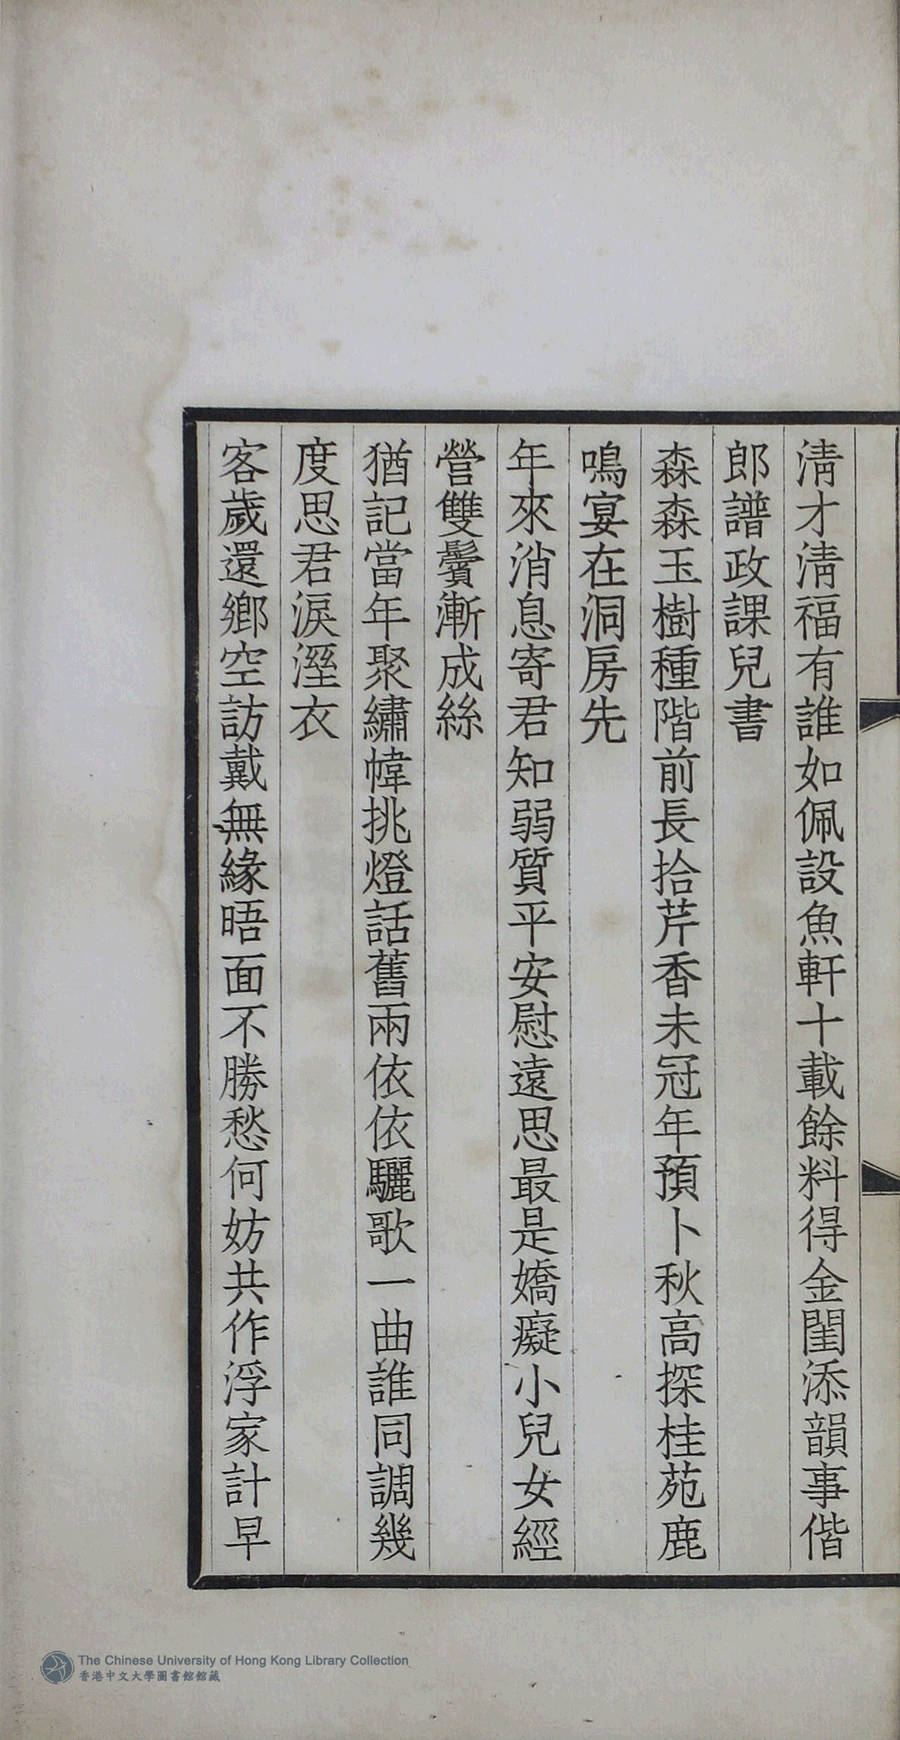 淸才淸福有誰如佩設魚軒十載餘料得金閨添韻事偕
郎譜政課兒書
森森玉樹種階前長拾芹香未冠年預卜秋高探桂苑鹿
鳴宴在洞房先
年來消息寄君知弱質平安慰遠思最是嬌癡小兒女經
營雙鬢漸成絲
猶記當年聚繡幃挑燈話舊兩依依驪歌一曲誰同調幾
度思君淚溼衣
客歲還鄉空訪戴無緣晤面不勝愁何妨共作浮家計早
The Chinese University of Hong Kong Library Collection
香港中文大學圖書館館藏